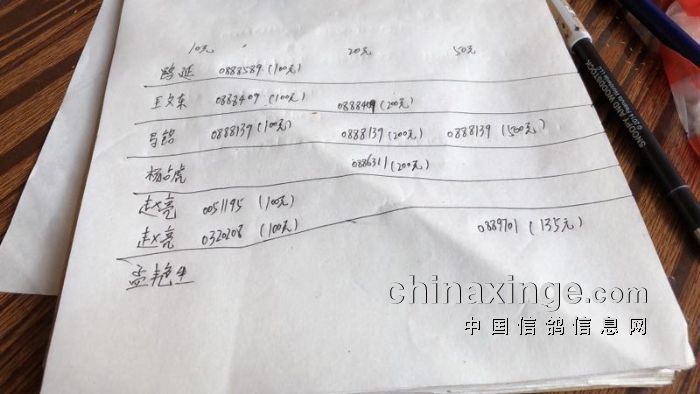 10元 20元 50元
鸥延 0888589 (100元)
王文东 0888409 (100元) 0888409 (200元)
马铭 0888139 (100元) 0888139 (200元) 0888139 (500元)
杨占虎 0886311 (200元)
赵亮 0051195 (100元)
赵亮 0320208 (100元) 0889701 (135元)
孟艳生
chinaxinge.com
中国信鸽信息网
SNOOPY AND WOODSTOCK